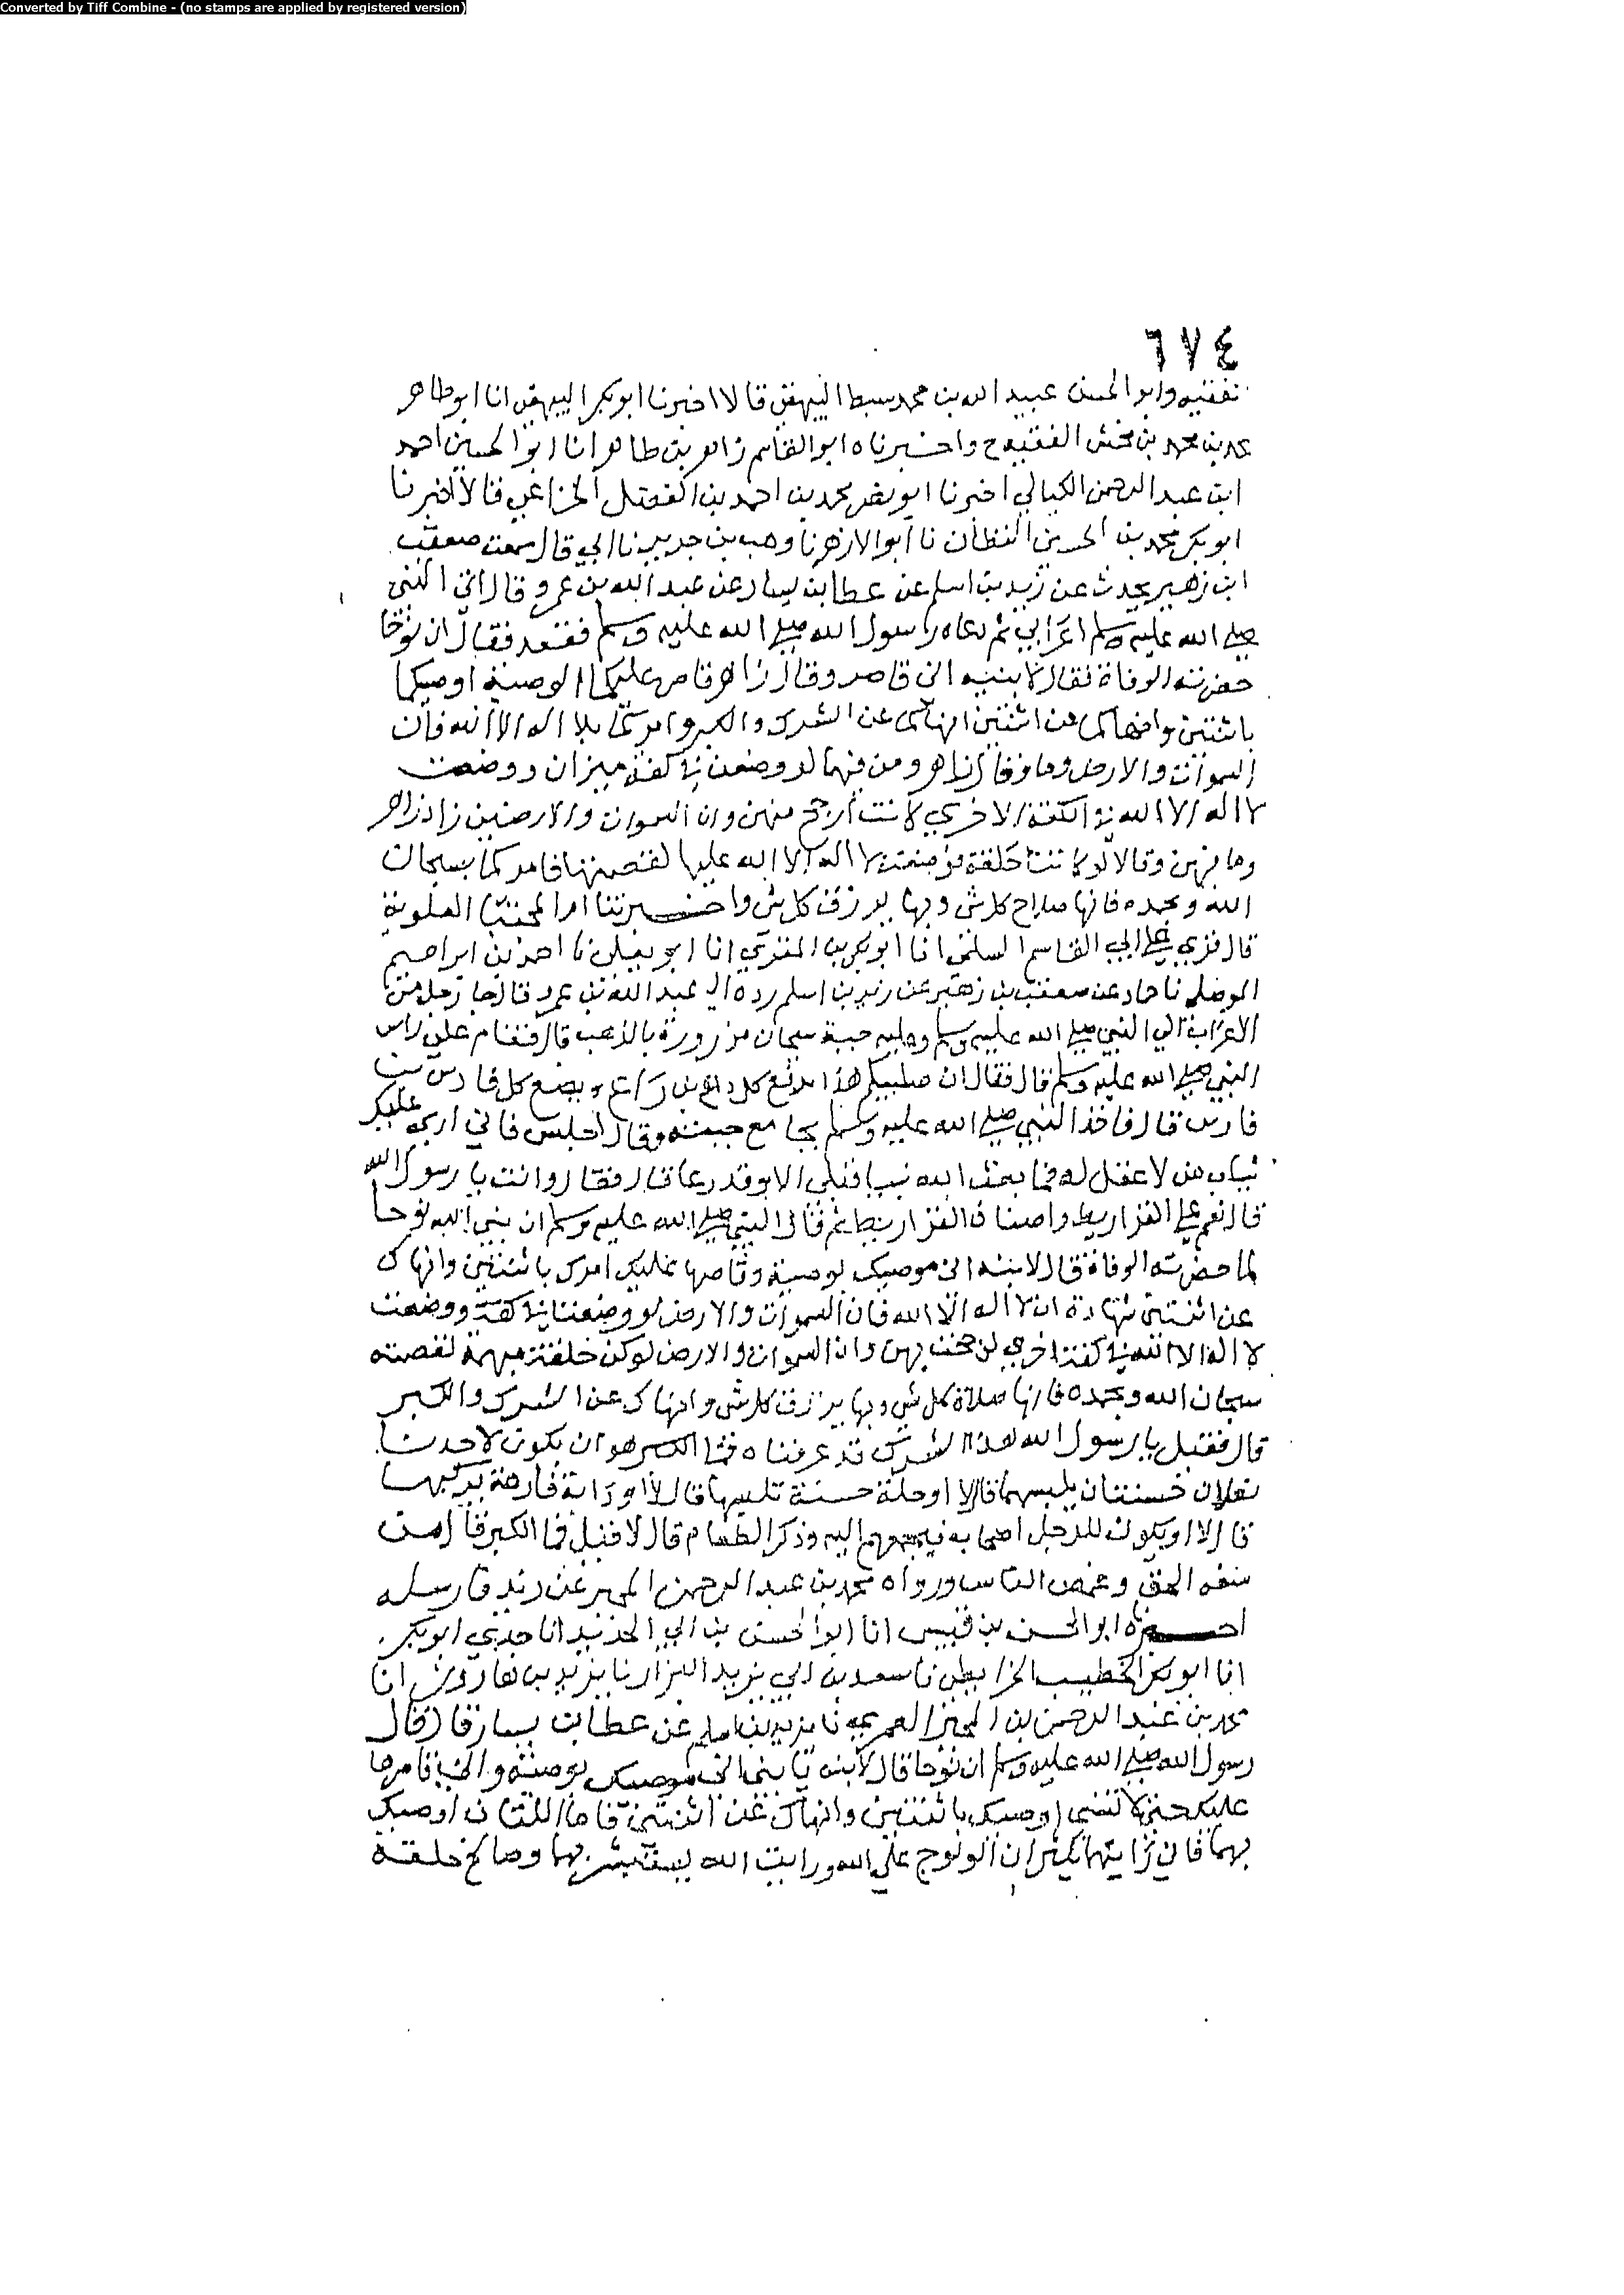 Converted by Tiff Combine - (no stamps are applied by registered version)
٦٧٤
الفقيه وابو الحسن عبيد الله بن محمد سبط البيهقي قالا اخبرنا ابو بكر البيهقي انا ابو طاهر
محمد بن محمد بن محمش الفقيه ح واخبرناه ابو القاسم زاهر بن طاهر انا ابو الحسين احمد
ابن عبد الرحمن الكيالي اخبرنا ابو نصر محمد بن احمد بن الفضل الخزاعي قالا اخبرنا
ابو بكر محمد بن الحسين القطان نا ابو الازهر نا وهب بن جرير نا ابي قال سمعت صقعب
ابن زهير يحدث عن زيد بن اسلم عن عطا بن يسار عن عبد الله بن عمرو قال اتى النبي
صلى الله عليه وسلم اعرابي ثم دعاه رسول الله صلى الله عليه وسلم فقعد فقال ان نوحا
حضرته الوفاة فقال لابنيه اني قاصر وقال زاهر قاص عليكما الوصية اوصيكما
باثنتين وانهاكما عن اثنتين انهاكما عن الشرك والكبر وامركما بلا اله الا الله فان
السموات والارض وما وقال زاهر ومن فيهما لو وضعت في كفة ميزان ووضعت
لا اله الا الله في الكفة الاخرى كانت ارجح منهن وان السموات والارضين زاد زاهر
وما فيهن وقالا لو كانتا حلقة فوضعت لا اله الا الله عليها لقصمتها وامركما بسبحان
الله وبحمده فانها صلاح كل شي وبها يرزق كل شي واخبرتنا ام المجتبا العلوية
قال قري على ابي القاسم السلمي انا ابو بكر بن المقري انا ابو يعلى نا احمد بن ابراهيم
الموصلي نا حماد عن صقعب بن زهير عن زيد بن اسلم رده الى عبد الله بن عمرو قال جا رجل من
الاعراب الى النبي صلى الله عليه وسلم وعليه جبة سيجان مزرورة بالذهب قال فقام على راس
النبي صلى الله عليه وسلم قال فقال ان صاحبكم هذا يرفع كل راع بن راع ويضع كل فارس بن
فارس قال فاخذ النبي صلى الله عليه وسلم بجامع جبته وقال اجلس فاني ارى عليك
ثياب من لا عقل له فما بعث الله نبيا قبلي الا وقد رعا قال فقالوا وانت يا رسول الله
قال نعم على القراريط وانصاف القراريط ثم قال النبي صلى الله عليه وسلم ان نبي الله نوحا
لما حضرته الوفاة قال لابنه اني موصيك بوصية وقاصها عليك امرك باثنتين وانهاك
عن اثنتين شهادة ان لا اله الا الله فان السموات والارض لو وضعتا في كفة ووضعت
لا اله الا الله في كفة اخرى لرجحت بهن وان السموات والارض لو كن حلقة مبهمة لقصمته
سبحان الله وبحمده فانها صلاة كل شي وبها يرزق كل شي وانهاك عن الشرك والكبر
قال فقيل يا رسول الله هذا الشرك قد عرفناه فما الكبر هو ان يكون لاحدنا
نعلان حسنتان يلبسهما قال لا او حلة حسنة تلبسها قال لا او دابة فارهة يركبها
قال لا او يكون للرجل اصحابه فيجمعهم اليه وذكر الطعام قال لا قيل فما الكبر قال من
سفه الحق وغمص الناس ورواه محمد بن عبد الرحمن المجبر عن زيد فارسله
اخبرناه ابو الحسن بن قبيس انا ابو الحسن بن ابي الحديد انا جدي ابو بكر
انا ابو بكر الخطيب الخرايطي نا سعد بن ابي يزيد البزار نا يزيد بن هارون انا
محمد بن عبد الرحمن بن المجبر العمري نا زيد بن اسلم عن عطا بن يسار قال قال
رسول الله صلى الله عليه وسلم ان نوحا قال لابنه يا بني اني موصيك بوصية واني قاصرها
عليك حتى لا تنسى اوصيك باثنتين وانهاك عن اثنتين فاما اللتان اوصيك
بهما فاني رايتهما يكثران الولوج على الله ورايت الله يستبشر بهما وصالح خلقه